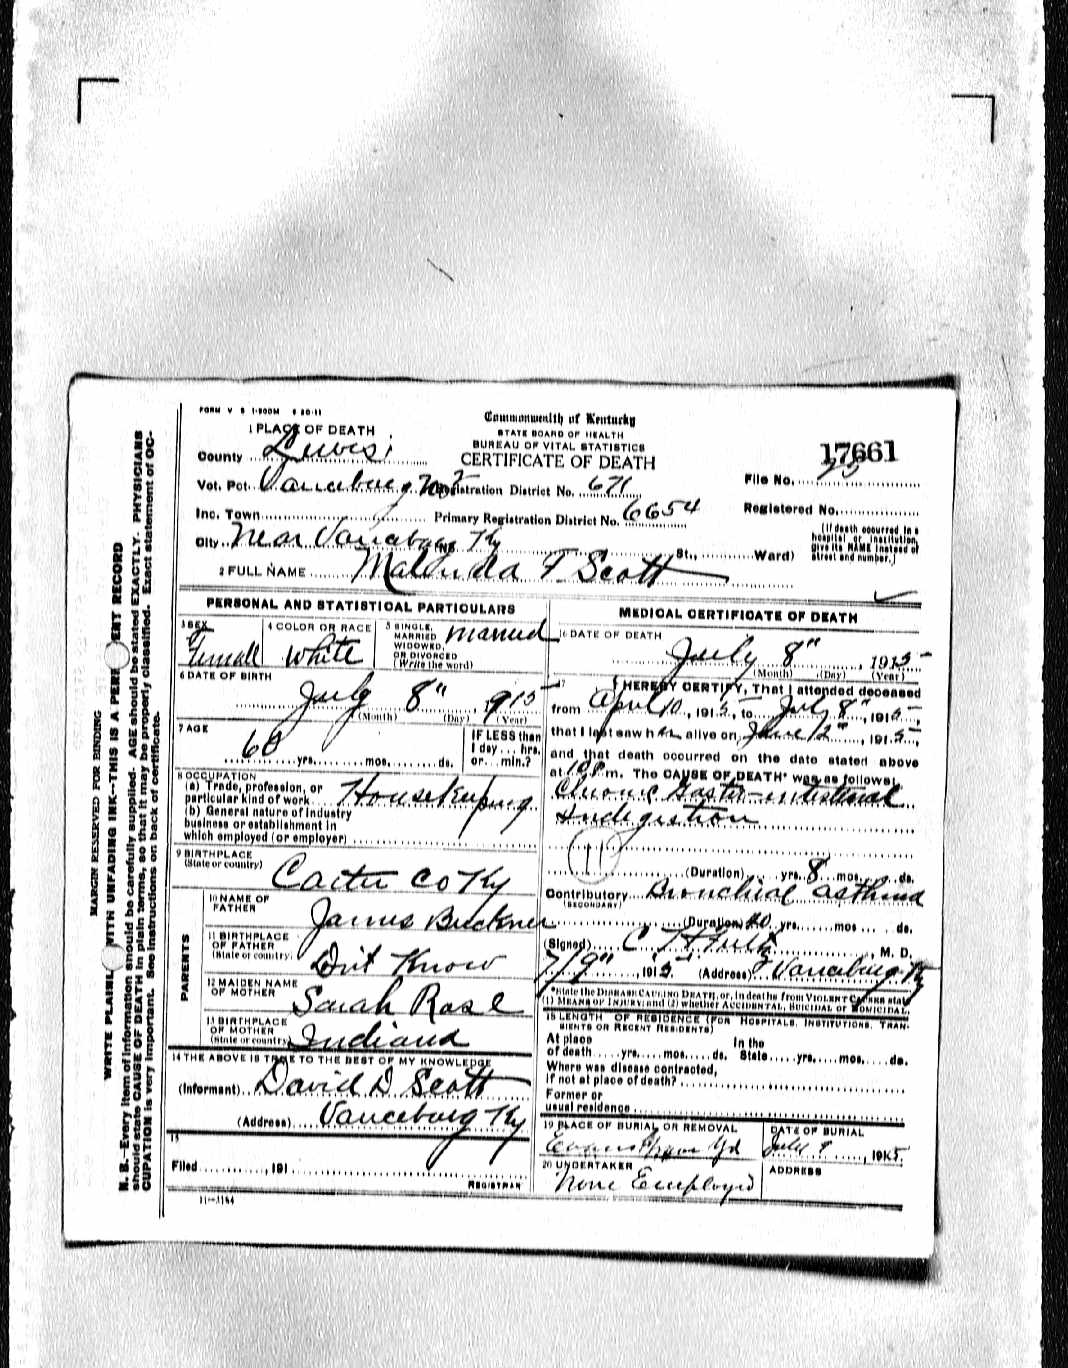 FORM V S 1-500M 6 20-11
1 PLACE OF DEATH
County Lewis
Vot. Pct. Vanceburg No 2
Inc. Town
City Near Vanceburg Ky No. St., Ward)
Commonwealth of Kentucky
STATE BOARD OF HEALTH
BUREAU OF VITAL STATISTICS
CERTIFICATE OF DEATH
Registration District No. 671
Primary Registration District No. 6654
17661
File No.
Registered No.
(If death occurred in a
hospital or institution,
give its NAME instead of
street and number.)
2 FULL NAME Malinda F Scott
PERSONAL AND STATISTICAL PARTICULARS
3 SEX
Female
4 COLOR OR RACE
White
5 SINGLE,
MARRIED
WIDOWED,
OR DIVORCED
(Write the word)
married
6 DATE OF BIRTH
July 8", 1915
(Month) (Day) (Year)
7 AGE
60 yrs. mos. ds.
IF LESS than
1 day ... hrs.
or ... min.?
8 OCCUPATION
(a) Trade, profession, or
particular kind of work Housekeeping
(b) General nature of industry
business or establishment in
which employed (or employer)
9 BIRTHPLACE
(State or country) Carter Co Ky
PARENTS
10 NAME OF
FATHER James Buckner
11 BIRTHPLACE
OF FATHER
(State or country) Dont Know
12 MAIDEN NAME
OF MOTHER Sarah Rose
13 BIRTHPLACE
OF MOTHER
(State or country) Indiana
14 THE ABOVE IS TRUE TO THE BEST OF MY KNOWLEDGE
(Informant) David D Scott
(Address) Vanceburg Ky
15
Filed , 191
REGISTRAR
11-3184
MEDICAL CERTIFICATE OF DEATH
16 DATE OF DEATH
July 8", 1915
(Month) (Day) (Year)
17 I HEREBY CERTIFY, That I attended deceased
from April 10, 1915, to July 8", 1915,
that I last saw her alive on June 12", 1915,
and that death occurred on the date stated above
at 10 P m. The CAUSE OF DEATH* was as follows:
Chronic Gastro-intestinal
Indigestion
(Duration) yrs. 8 mos. ds.
Contributory Bronchial asthma
(SECONDARY)
(Duration) yrs. mos. ds.
(Signed) , M. D.
7/9", 1915 (Address) Vanceburg Ky
*State the DISEASE CAUSING DEATH, or, in deaths from VIOLENT CAUSES state
(1) MEANS OF INJURY; and (2) whether ACCIDENTAL, SUICIDAL or HOMICIDAL.
18 LENGTH OF RESIDENCE (FOR HOSPITALS, INSTITUTIONS, TRAN-
SIENTS OR RECENT RESIDENTS)
At place
of death yrs. mos. ds.
In the
State yrs. mos. ds.
Where was disease contracted,
if not at place of death?
Former or
usual residence
19 PLACE OF BURIAL OR REMOVAL
Evans
DATE OF BURIAL
July 9, 1915
20 UNDERTAKER
None Employed
ADDRESS
MARGIN RESERVED FOR BINDING
WRITE PLAINLY WITH UNFADING INK--THIS IS A PERMANENT RECORD
N. B.--Every item of information should be carefully supplied. AGE should be stated EXACTLY. PHYSICIANS
should state CAUSE OF DEATH in plain terms, so that it may be properly classified. Exact statement of OC-
CUPATION is very important. See instructions on back of certificate.